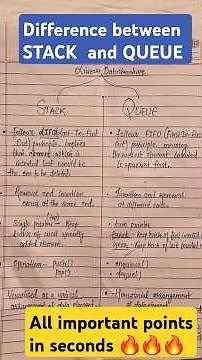 Difference between
STACK and QUEUE
Linear Datastructure
STACK
QUEUE
- follows LIFO (Last-In-First
Out) principle, implies
that element which is
inserted last would be
the one to be deleted.
- follows FIFO (First In First
Out) principle, meaning
element entered
is removed first.
- Removal and Insertion
occurs at the same end.
- Insertion and removal
at different ends.
- Single pointer - keep
track of most recently
added element.
- two pointers
front - keep track of first
rear - keep track of last
- Operation - push()
pop()
- enqueue()
dequeue()
Visualized as a vertical
- Horizontal arrangement
All important points
in seconds 🔥🔥🔥